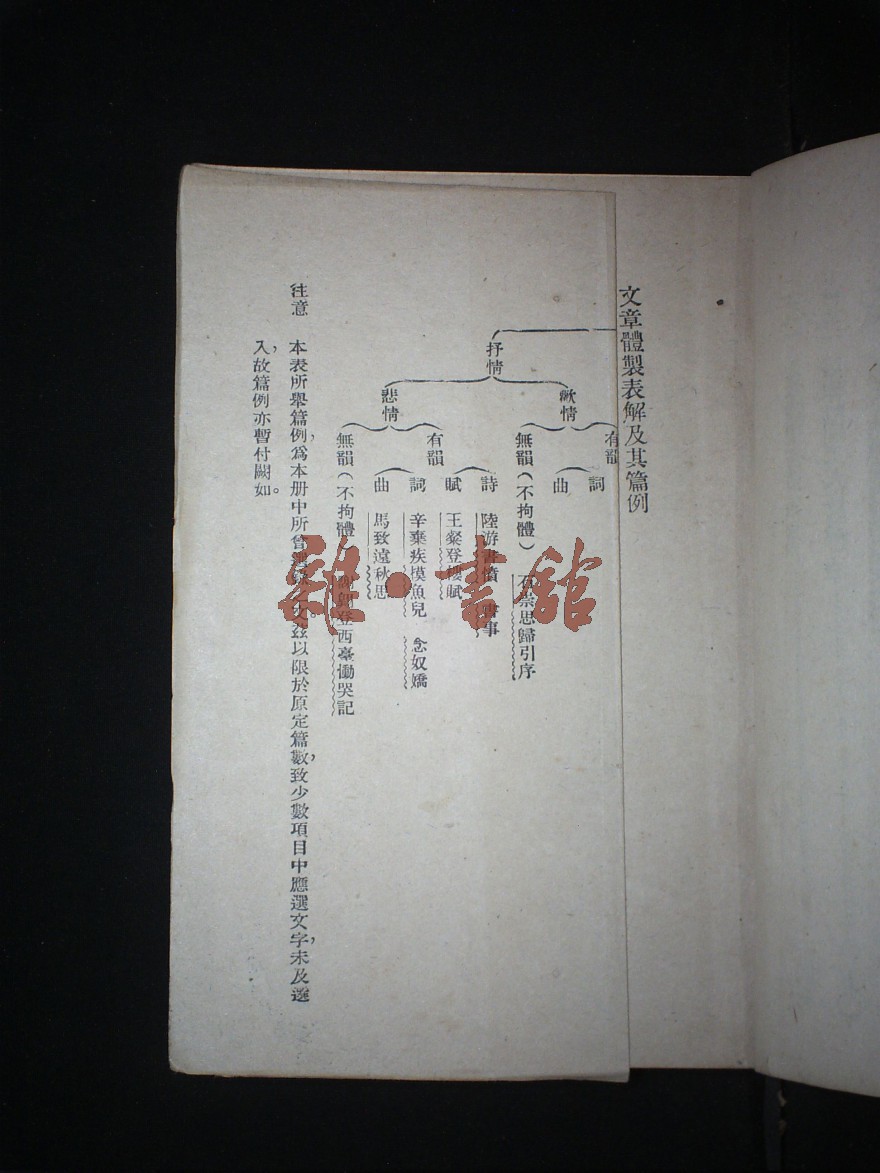 文章體製表解及其篇例
抒情
歡情
有韻
詞
曲
無韻（不拘體）
石崇思歸引序
悲情
有韻
詩
陸游書憤 書事
賦
王粲登樓賦
詞
辛棄疾摸魚兒 念奴嬌
曲
馬致遠秋思
無韻（不拘體）
謝翱登西臺慟哭記
注意
本表所舉篇例，爲本册中所
之文。茲以限於原定篇數，致少數項目中應選文字，未及選
入，故篇例亦暫付闕如。
雜·書館